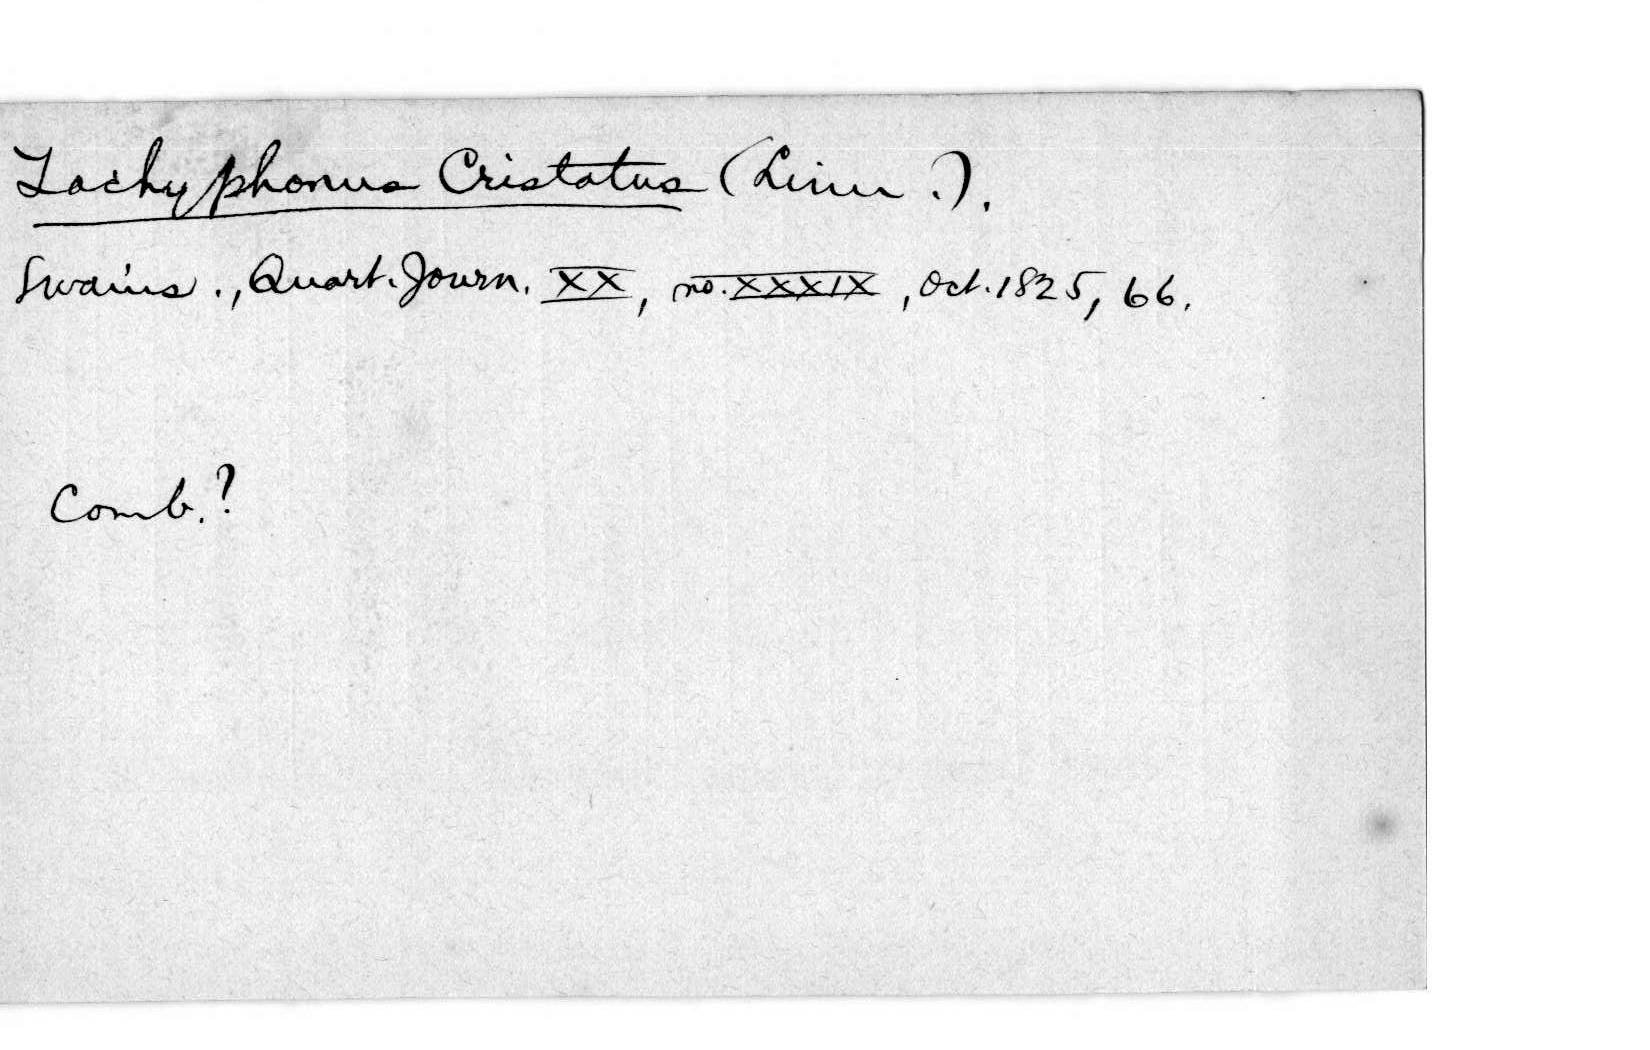 Tachyphonus Cristatus (Linn.).
Swains., Quart. Journ. XX, no. XXXIX, Oct. 1825, 66.
Comb.?